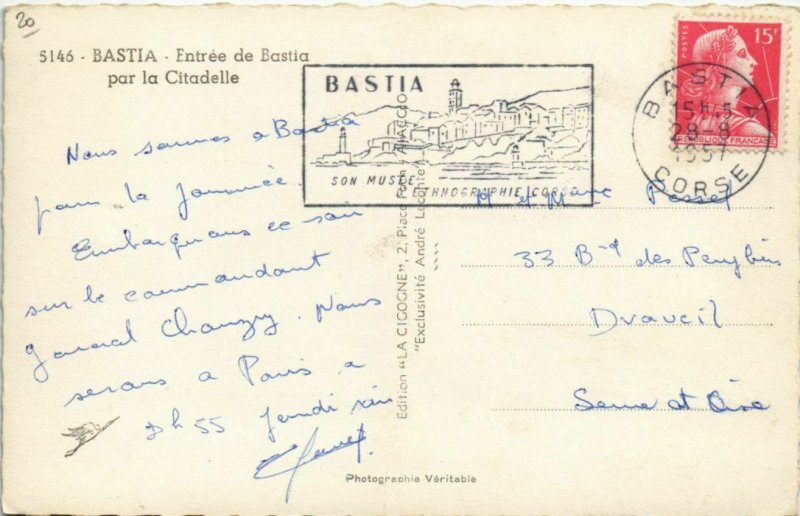 20
5146 - BASTIA - Entrée de Bastia
par la Citadelle
BASTIA
SON MUSÉE
D'ETHNOGRAPHIE CORSE
POSTES
15F
REPUBLIQUE FRANÇAISE
BASTIA
15H 5
28-8
1957
CORSE
Nous sommes a Bastia
pour la journée.
Embarquons ce soir
sur le commandant
General Chanzy. Nous
serons a Paris a
h 55 Jeudi soir
Edition "LA CIGOGNE", 2, Place Foch, AJACCIO
"Exclusivité André Leconte"
M et Mme
33 Bd des
Draveil
Seine et Oise
Photographie Véritable